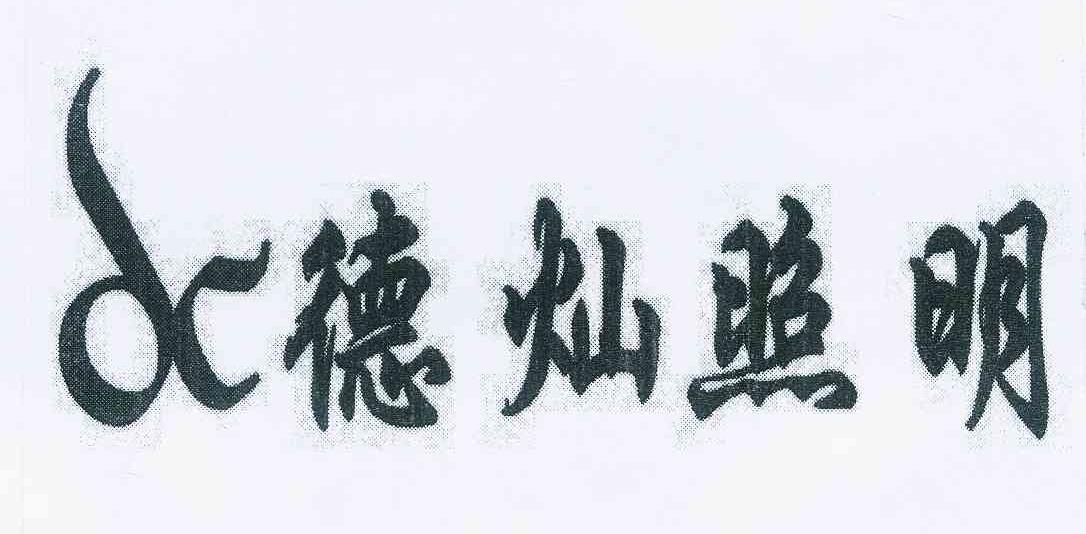 dc德灿照明